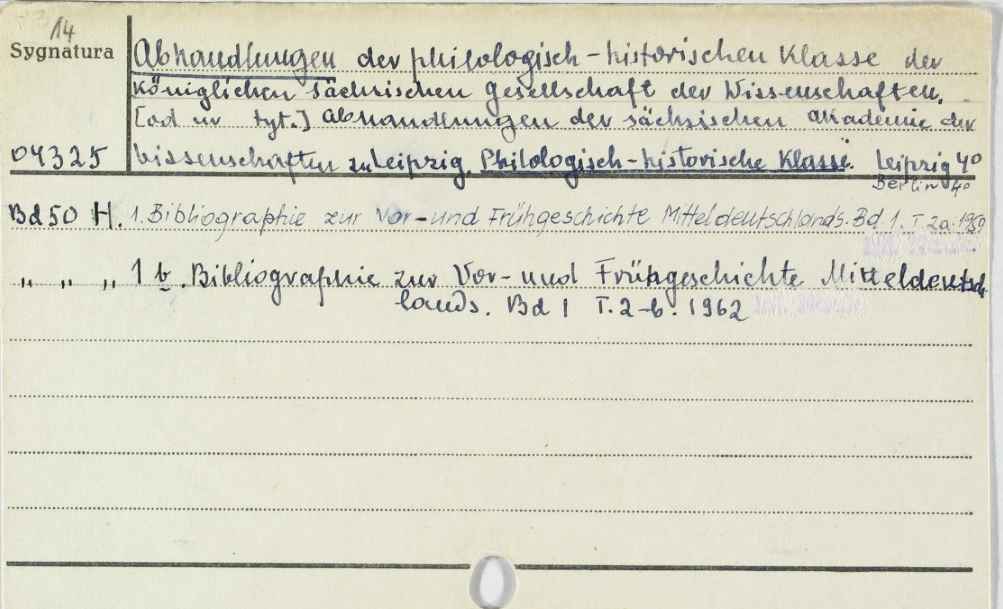 14
Sygnatura
Abhandlungen der philologisch-historischen Klasse der
Königlichen Sächsischen Gesellschaft der Wissenschaften.
[od nr tyt.] Abhandlungen der sächsischen Akademie der
04325 Wissenschaften zu Leipzig. Philologisch-historische Klasse. Leipzig 4°
Berlin 4°
Bd 50 H. 1. Bibliographie zur Vor- und Frühgeschichte Mitteldeutschlands. Bd 1. T. 2a. 1959
„ „ „ 1 b. Bibliographie zur Vor- und Frühgeschichte Mitteldeutsch
lands. Bd 1 T. 2-b. 1962